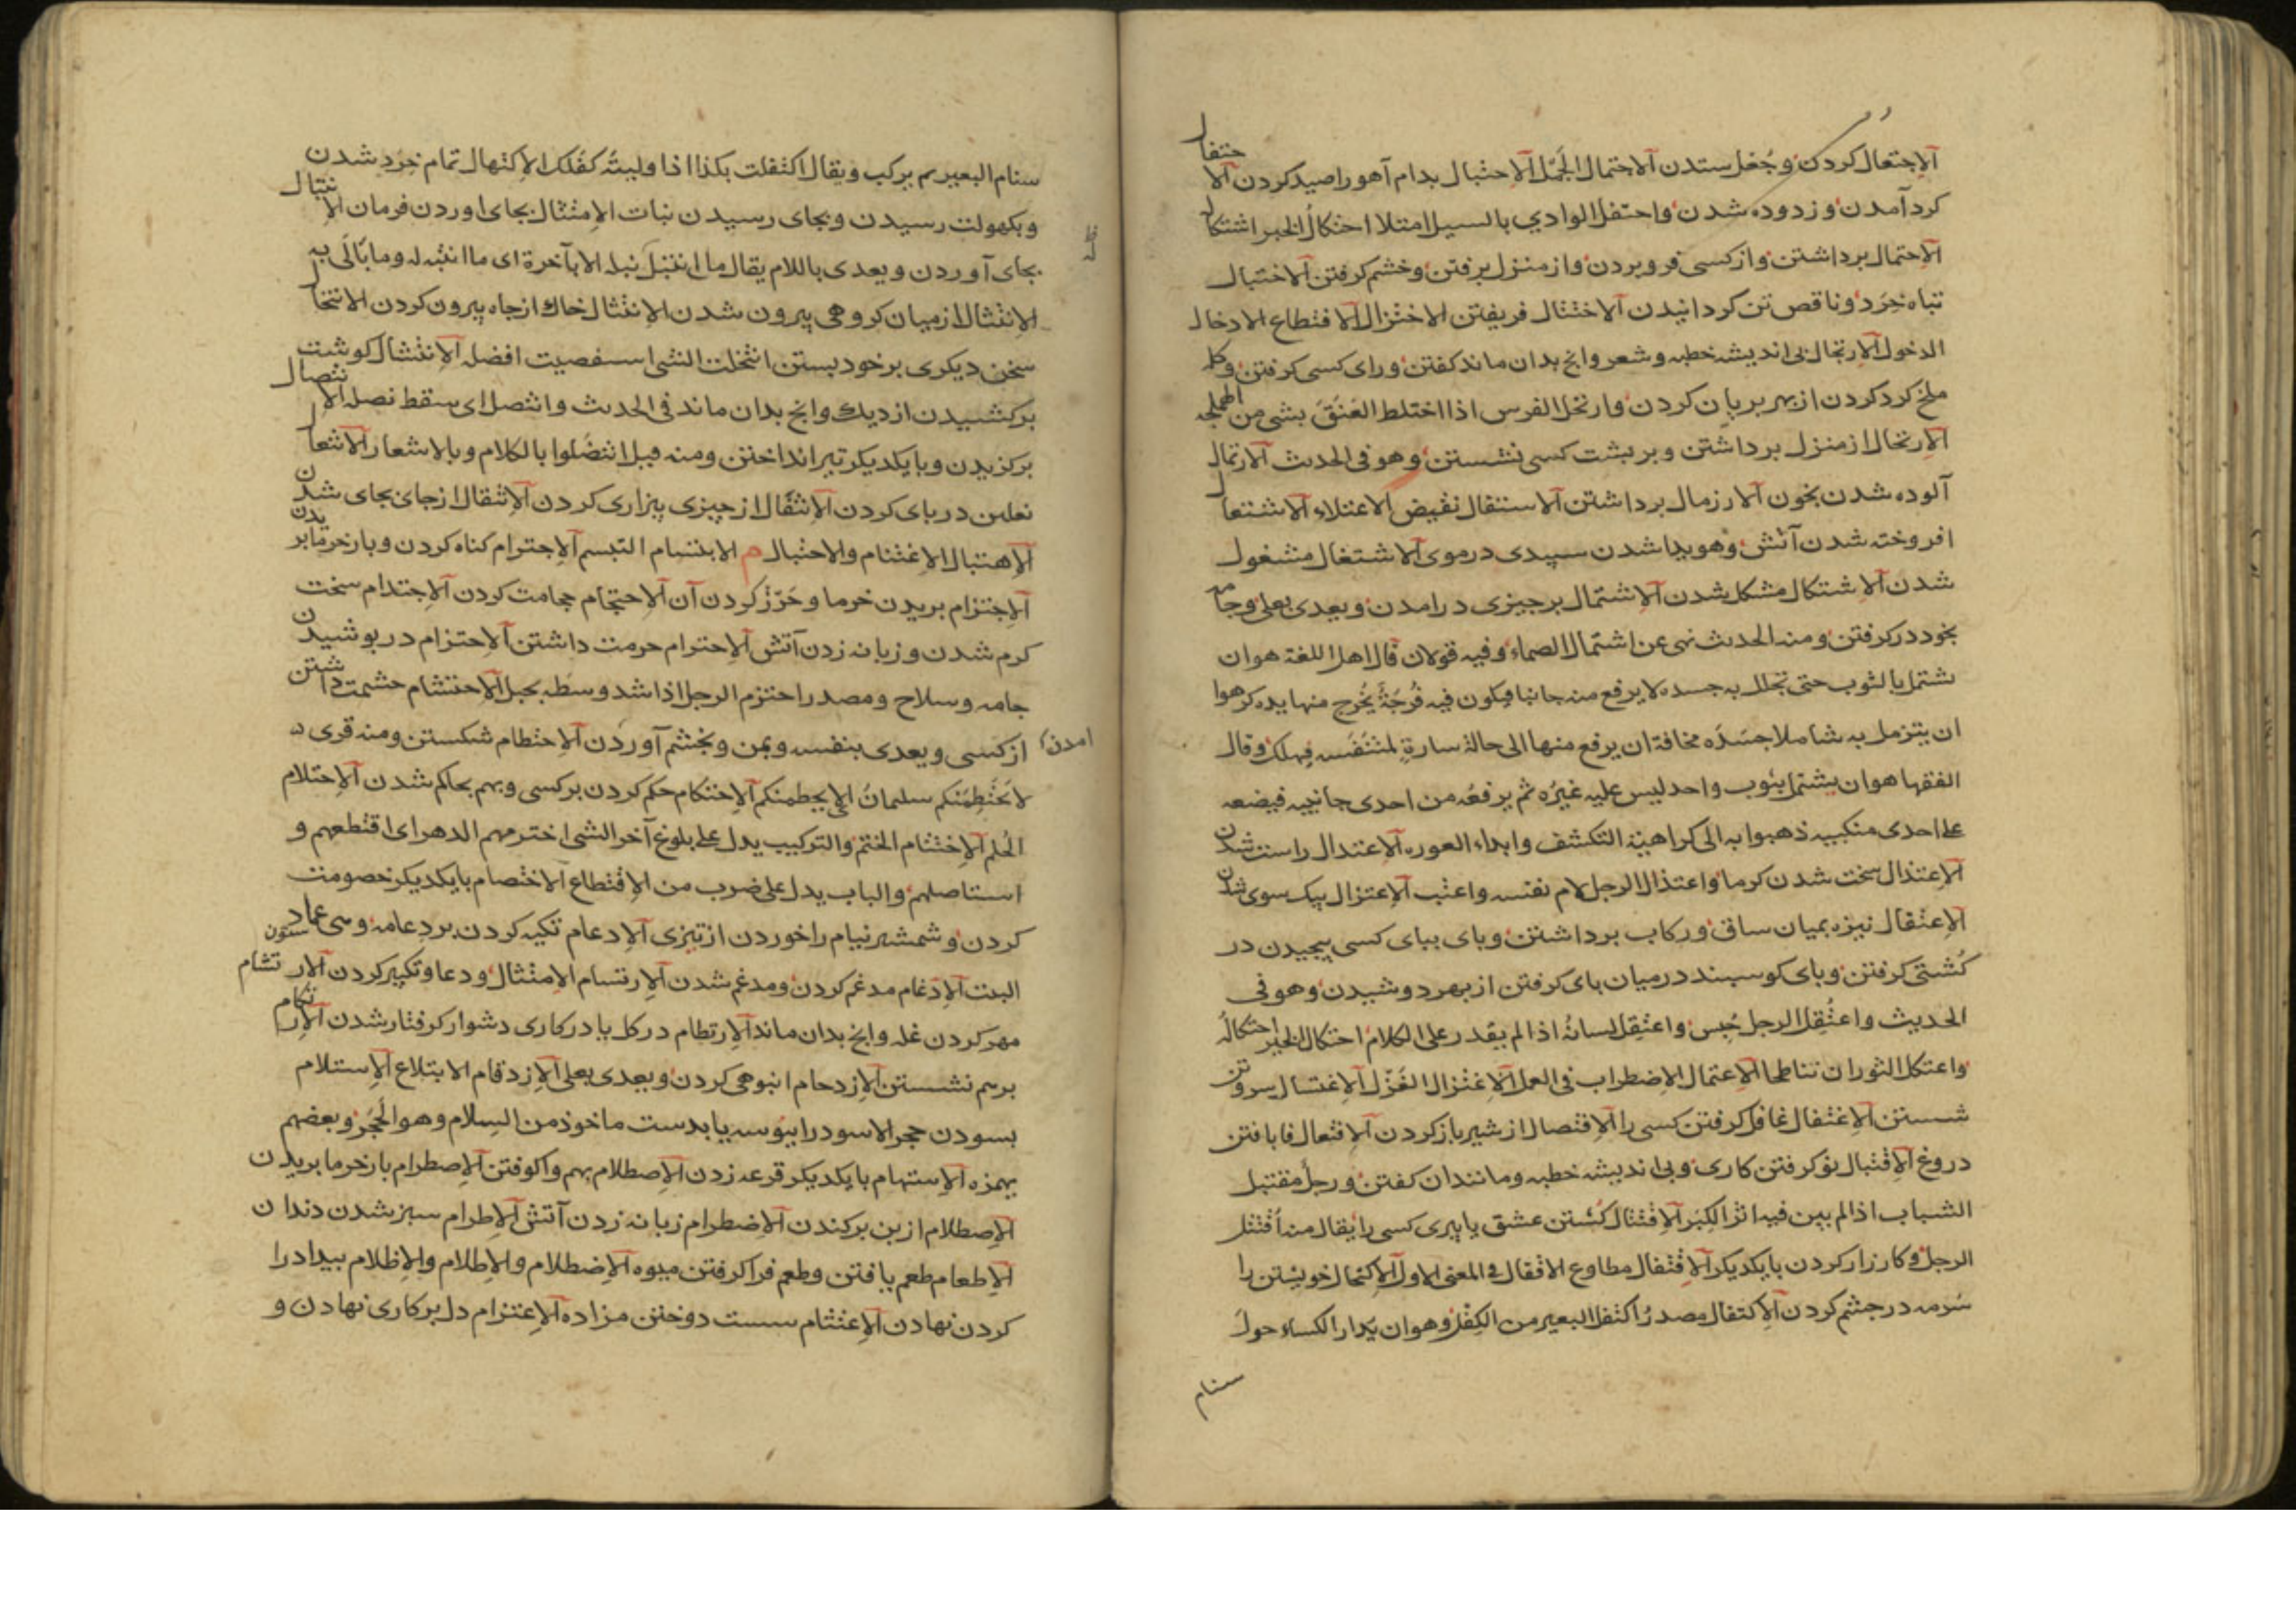 الاجتعال کردن وجُعل ستدن الاجتمال الجَمل الاحتبال بدام آهو را صید کردن الاحتفال
کرد آمدن وزدوده شدن واحتفل الوادي بالسیل امتلا احتکال الخبر اشتکال
الاحتمال برداشتن واز کسی فرو بردن واز منزل برفتن وخشم کرفتن الاختبال
تباه خِرَد وناقص تن کردانیدن الاختتال فریفتن الاختزال الاقتطاع الادخال
الدخول الارتجال بی اندیشه خطبه وشعر وانچ بدان ماند کفتن ورای کسی کرفتن وکله
ملخ کرد کردن از بهر بریان کردن وارتجل الفرس اذا اختلط العَنَقَ بشی من الهملجه
الارتحال از منزل برداشتن وبر پشت کسی نشستن وهو فی الحدیث الارتمال
آلوده شدن بخون الازدمال برداشتن الاستفال نقیض الاعتلاء الاشتعال
افروخته شدن آتش وهویدا شدن سپیدی در موی الاشتغال مشغول
شدن الاشتکال مشکل شدن الاشتمال بر چیزی درامدن ویعدی بعلی وجامه
بخود در کرفتن ومنه الحدیث نهی عن اشتمال الصماء وفیه قولان قال اهل اللغة هو ان
یشتمل بالثوب حتی یجلل به جسده لا یرفع منه جانبا فیکون فیه فُرجَةً یُخرج منها یده کرهوا
ان یتزمل به شاملا جسَدَه مخافة ان یرفع منها الی حالة سادةٍ لمتنَفَسه فیهلک وقال
الفقها هو ان یشتمل بثوب واحد لیس علیه غیرُه ثم یرفعُه من احدی جانبیه فیضعه
علی احدی منکبیه ذهبوا به الی کراهیة التکشف وابداء العوره الاعتدال راست شدن
الاعتذال سخت شدن کرما واعتذال الرجل لام نفسه واعتب الاعتزال بیک سوی شدن
الاعتقال نیزه بمیان ساق ورکاب برداشتن وپای بپای کسی پیچیدن در
کُشتی کرفتن وپای کوسپند در میان پای کرفتن از بهر دوشیدن وهو فی
الحدیث واعتُقل الرجل حُبس واعتقل لسانُه اذا لم یقدر علی الکلام احتکال الخبر احتکاله
واعتکل الثوران تناطحا الاعتمال الاضطراب فی العمل الاغتزال الغَزْل الاغتسال سر وتن
شستن الاغتفال غافل کرفتن کسی را الافتصال از شیر باز کردن الافتعال فرا بافتن
دروغ الاقتبال نو کرفتن کاری وبی اندیشه خطبه ومانند ان کفتن ورجل مقتبل
الشباب اذا لم یبن فیه اثر الکِبَر الاقتتال کُشتن عشق یا پری کسی را یقال منه اُقتتل
الرجل وکارزار کردن با یکدیکر الاقتفال مطاوع الاقفال فی المعنی الاول الاکتحال خویشتن را
سُرمه در چشم کردن الاکتفال مصدر اکتفل البعیر من الکِفل وهو ان یدار الکساء حول
سنام
سنام البعیر ثم یرکب ویقال اکتفلت بکذا اذا ولیته کفلک الاکتهال تمام خِرَد شدن
وبکهولت رسیدن وبجای رسیدن نبات الامتثال بجای اوردن فرمان الانتبال
بجای آوردن ویعدی باللام یقال ما انتبل نبله الا بآخرة ای ما انتبه له وما بالی به
الانتثال از میان کروهی بیرون شدن الانتثال خاک از چاه بیرون کردن الانتحال
سخن دیکری بر خود بستن انتخلت الشی استقصیت افضله الانتشال کوشت
برکشیدن از دیک وانچ بدان ماند فی الحدیث وانتصل ای سقط نصله الانتصال
برکزیدن وبا یکدیکر تیر انداختن ومنه قیل انتضلوا بالکلام وبالاشعار الانتعال
نعلین در پای کردن الانتفال از چیزی بیزاری کردن الانتقال از جای بجای شدن
الاهتبال الاغتنام والاحتیال م الابتسام التبسم الاجترام کناه کردن وبار خرما بریدن
الاجتزام بریدن خرما وحَرْزْ کردن آن الاحتجام حجامت کردن الاحتدام سخت
کرم شدن وزبانه زدن آتش الاحترام حرمت داشتن الاحتزام در پوشیدن
جامه وسلاح ومصدر احتزم الرجل اذا شد وسَطَه بحبل الاحتشام حشمت داشتن
از کسی ویعدی بنفسه وبمن وبخشم آوردن الاحتطام شکستن ومنه قری
امدن
لا یَحَتطِمَنَّکم سلیمانُ ای لا یحطمنکم الاحتکام حکم کردن بر کسی وبهم بحاکم شدن الاحتلام
الحُلم الاختتام الختم والترکیب یدل علی بلوغ آخر الشی اخترمهم الدهر ای اقتطعهم و
استاصلهم والباب یدل علی ضرب من الاقتطاع الاختصام با یکدیکر خصومت
کردن وشمشیر نیام را خوردن از تیزی الادعام تکیه کردن بر دعامه وهی عماد ستون
البیت الادّغام مدغم کردن ومدغم شدن الارتسام الامتثال ودعا وتکبیر کردن الارتشام
مهر کردن غله وانچ بدان ماند الارتطام در کل یا در کاری دشوار کرفتار شدن الارتکام
بر هم نشستن الازدحام انبوهی کردن ویعدی بعلی الازدقام الابتلاع الاستلام
بسودن حجر الاسود را ببوسه یا بدست ماخوذ من السِلام وهو الحَجَر وبعضهم
یهمزه الاستهام با یکدیکر قرعه زدن الاصطدام بهم واکوفتن الاصطرام بار خرما بریدن
الاصطلام از بن برکندن الاضطرام زبانه زدن آتش الاطرام سبز شدن دندان
الاطعام طعم یافتن وطعم فرا کرفتن میوه الاضطلام والاطلام والاظلام بیداد را
کردن نهادن الاغتثام سست دوختن مزاده الاعتزام دل بر کاری نهادن و